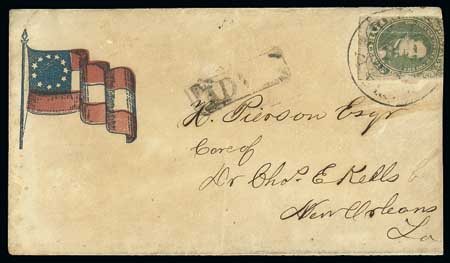 PAID
H. Pierson Esqr
Care of
Dr Chas. E Kells
New Orleans
La